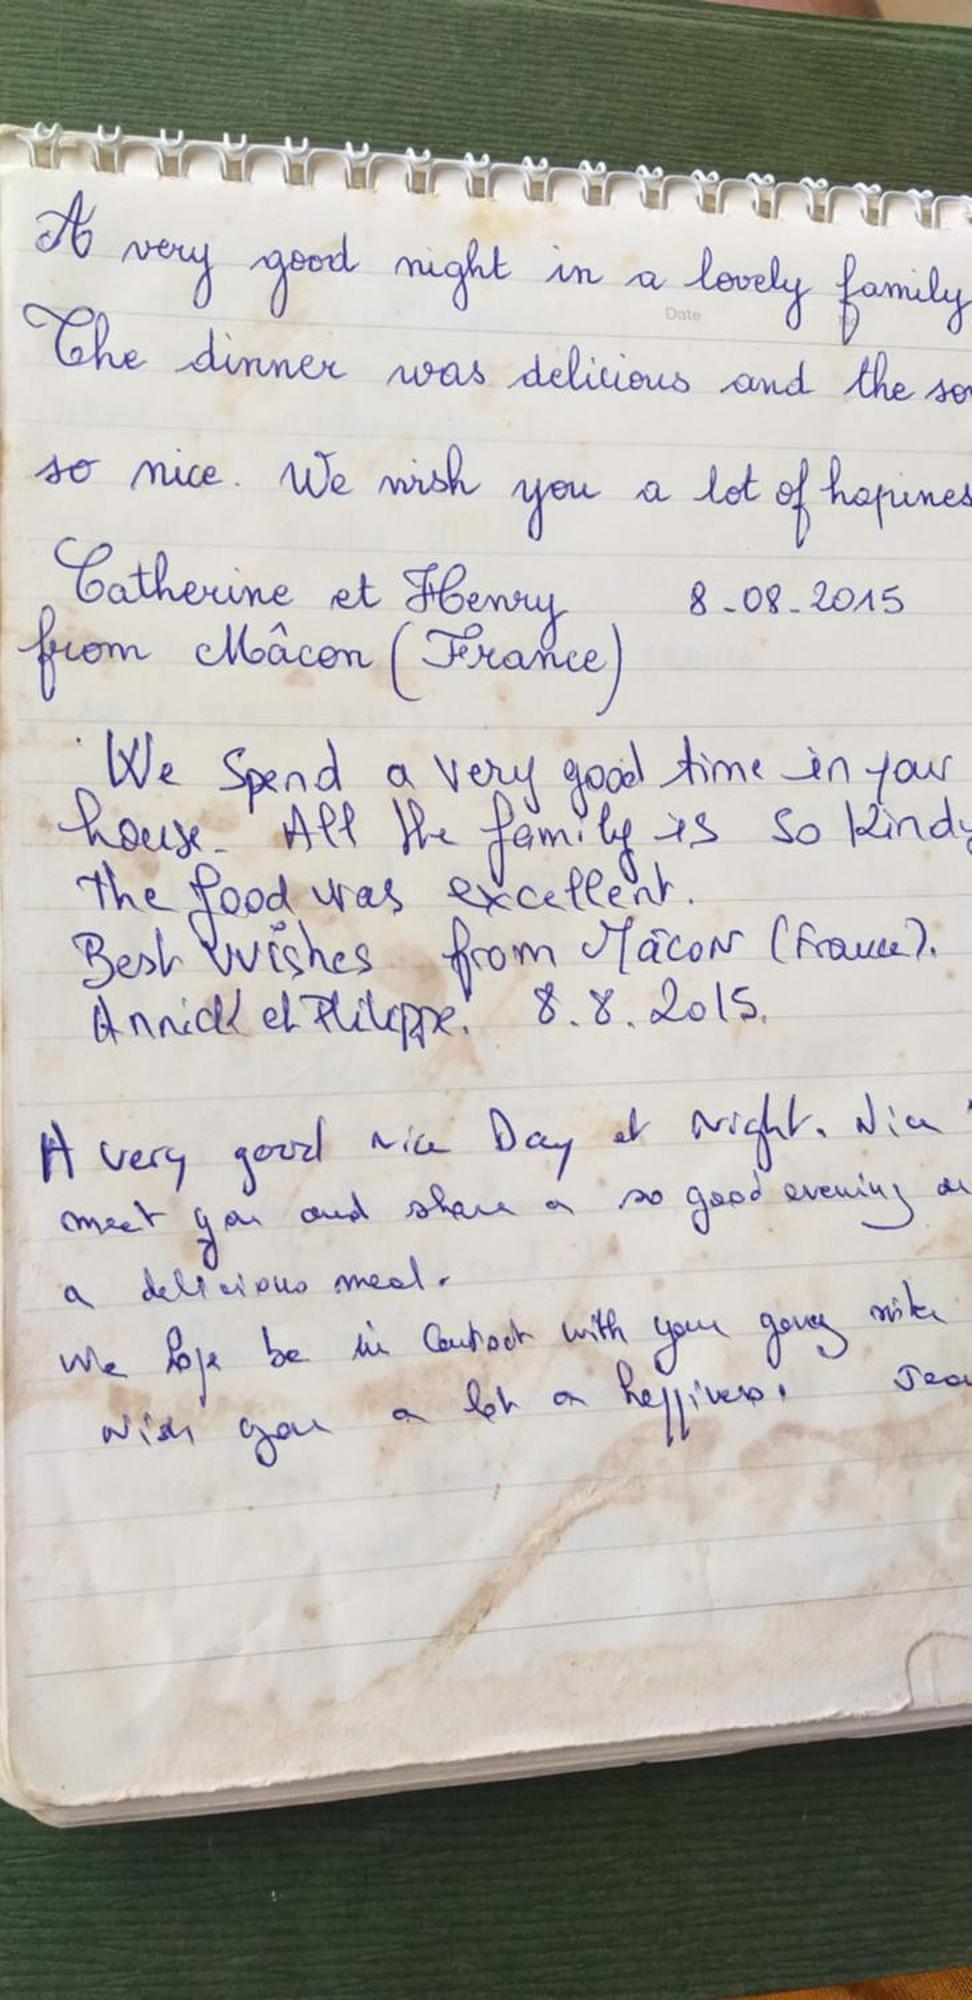 A very good night in a lovely family
Date No
The dinner was delicious and the
so nice. We wish you a lot of hapines
Catherine et Henry 8-08-2015
from Mâcon (France)
We Spend a very good time in your
house. All the family is so kindy
the food was excellent.
Best Wishes from Mâcon (France).
Annick et Philippe. 8.8.2015.
A very good nice Day et Night. Nice
meet you and share a so good evening
a delicious meal.
We hope be in Contact with your
wish you a lot a happiness.